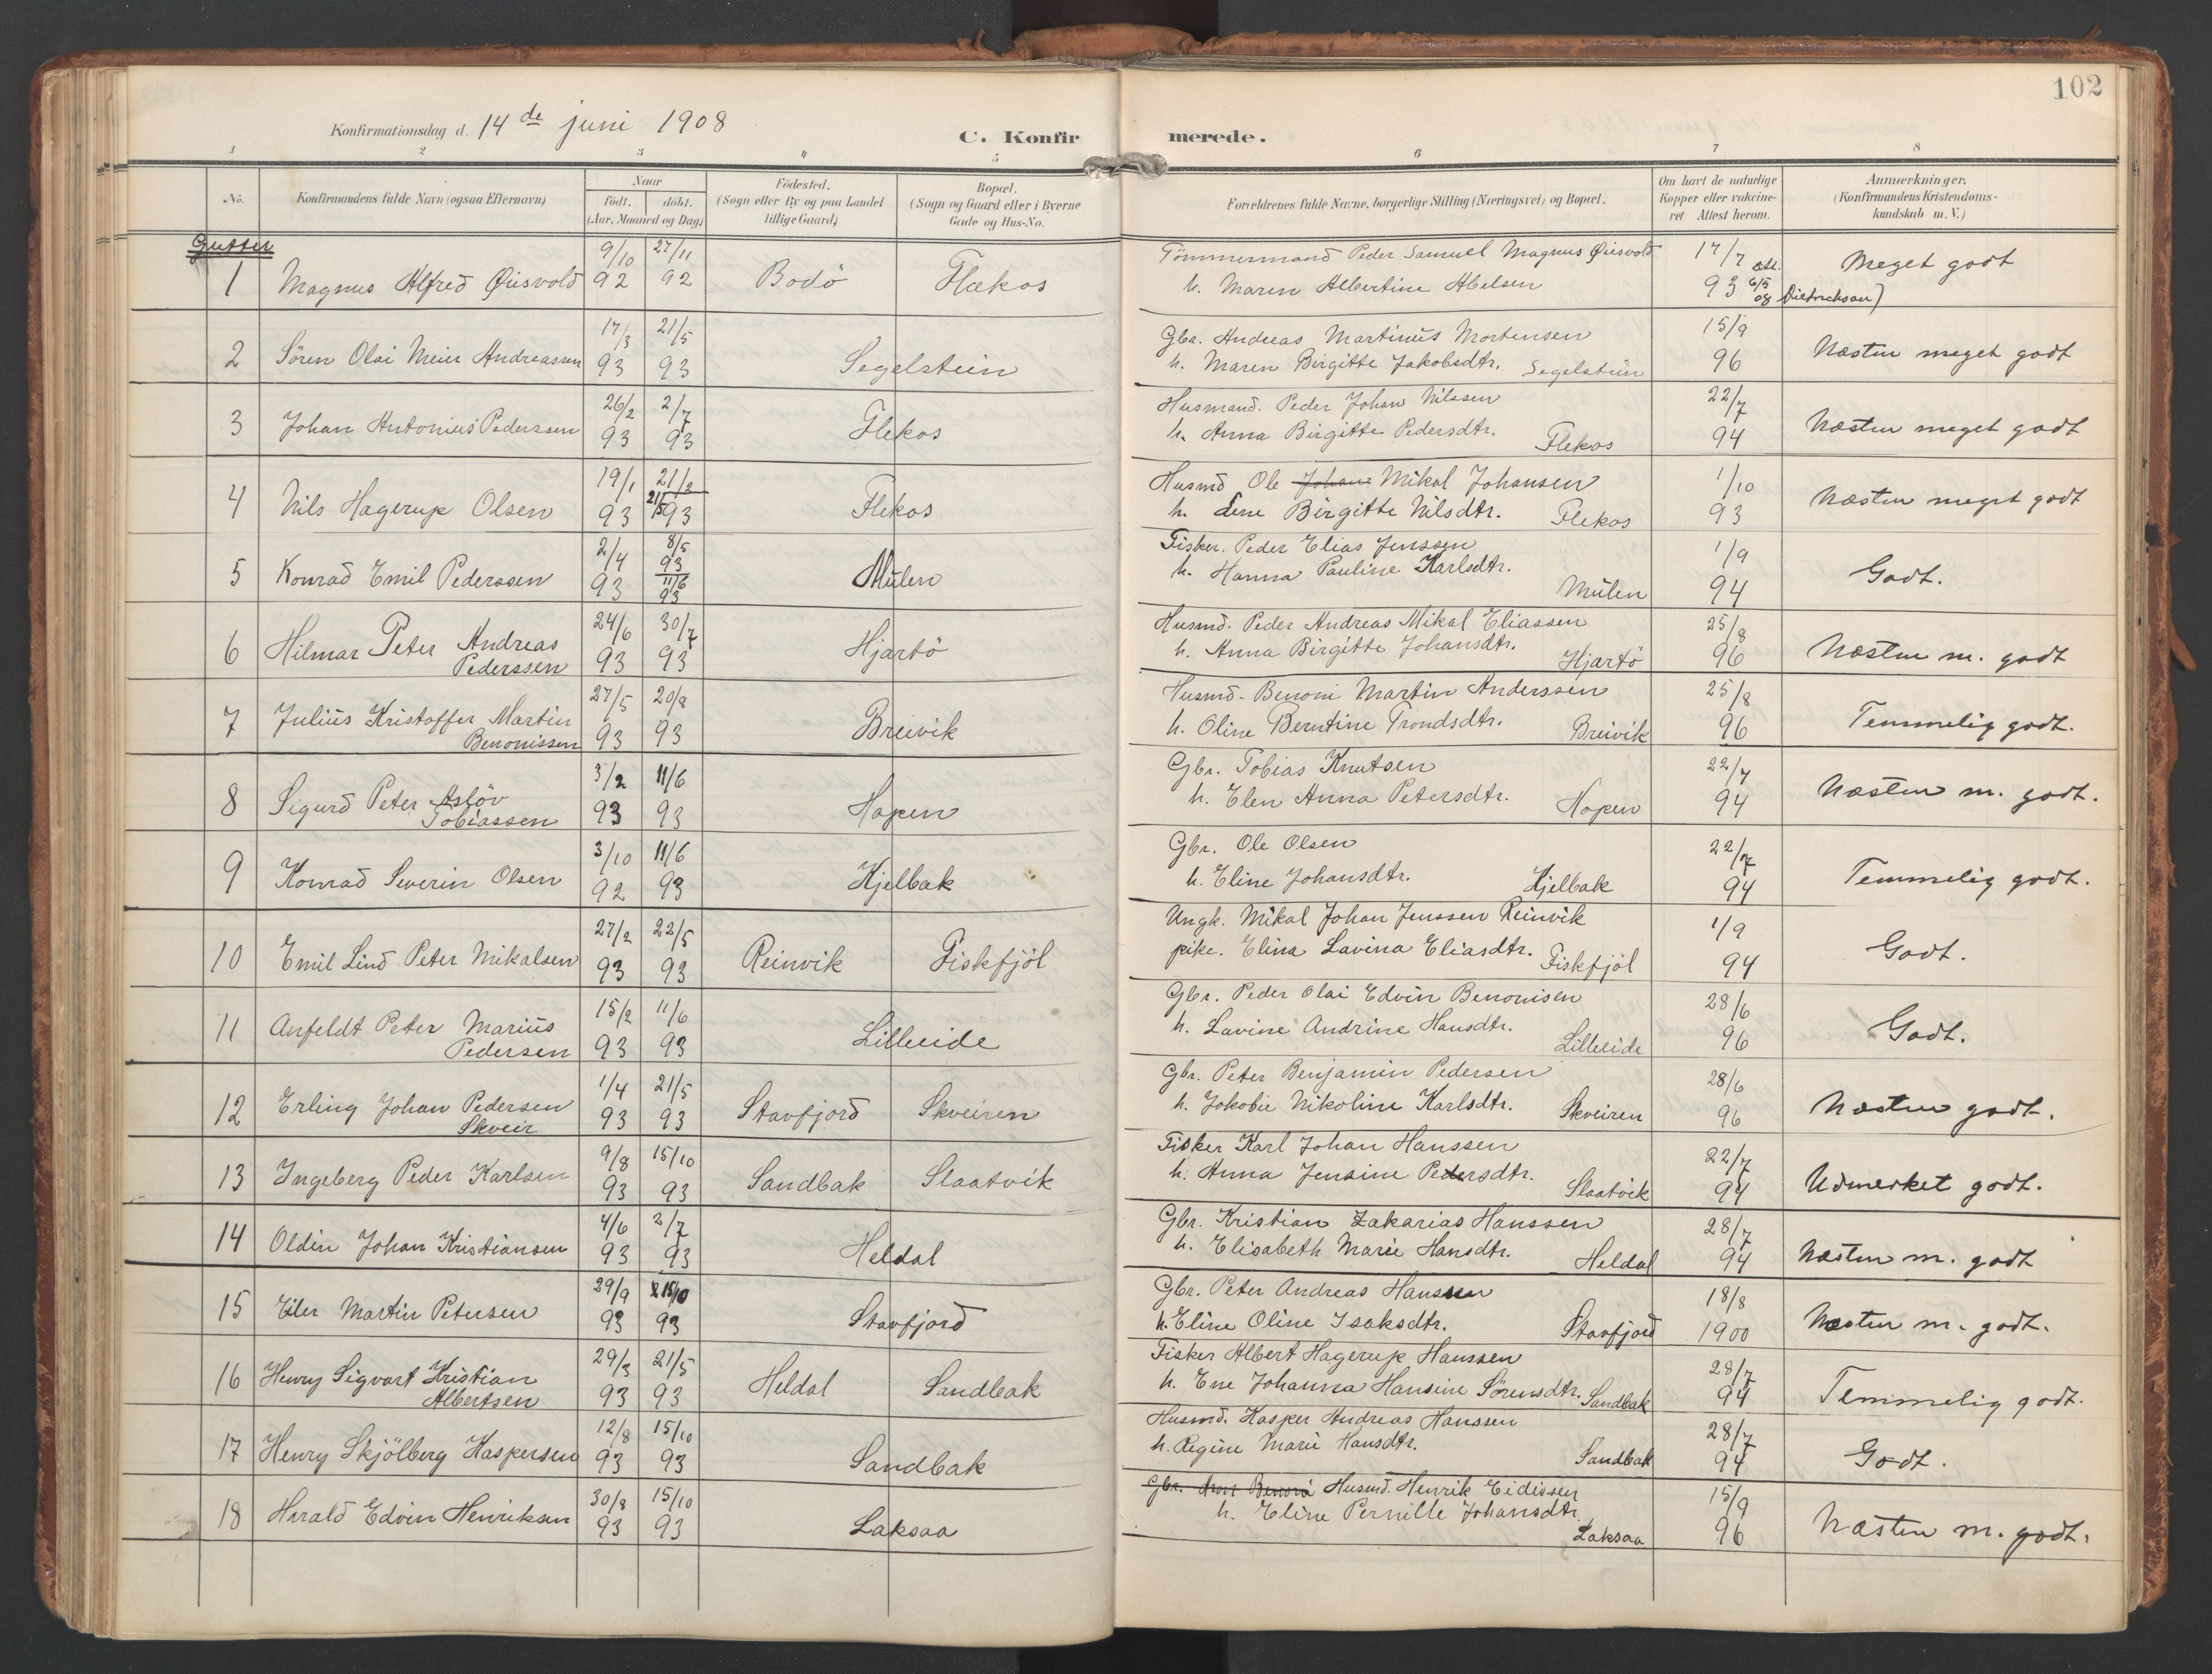 102
Konfirmationsdag d. 14de juni 1908
C. Konfirmerede.
1 2 3 4 5 6 7 8
No. Konfirmandens fulde Navn (ogsaa Efternavn) Naar födt. döbt. (Aar, Maaned og Dag) Födested. (Sogn eller By og paa Landet tillige Gaard) Bopæl. (Sogn og Gaard eller i Byerne Gade og Hus-No. Forældrenes fulde Navne, borgerlige Stilling (Næringsvei) og Bopæl. Om havt de naturlige Kopper eller vakcineret Attest herom. Anmærkninger. (Konfirmandens Kristendomskundskab m. V.)
Gutter
1 Magnus Alfred Øiesvold 9/10 92 27/11 92 Bodö Flekos Tömmermand Peder Samuel Magnus Øiesvold
h. Maren Albertine Abelsen 17/7 93 att. 6/5 08 Dietrichson) Meget godt
2 Sören Olai Meier Andreassen 17/3 93 21/5 93 Segelstein Gbr. Andreas Martinus Mortensen
h. Maren Birgitte Jakobsdtr. Segelstein 15/9 96 Næsten meget godt
3 Johan Antonius Pederssen 26/2 93 2/7 93 Flekos Husmand. Peder Johan Nilssen
h. Anna Birgitte Pedersdtr. Flekos 22/7 94 Næsten meget godt
4 Nils Hagerup Olsen 19/1 93 21/3 21/5 93 Flekos Husmd Ole Johan Mikal Johansen
h. Lene Birgitte Nilsdtr. Flekos 1/10 93 Næsten meget godt
5 Konrad Emil Pederssen 2/4 93 8/5 93 11/6 93 Mulen Fisker. Peder Elias Jenssen
h. Hanna Pauline Karlsdtr. Mulen 1/9 94 Godt.
6 Hilmar Peter Andreas Pederssen 24/6 93 30/7 93 Hjartö Husmd. Peder Andreas Mikal Eliassen
h. Anna Birgitte Johansdtr. Hjartö 25/8 96 Næsten m. godt
7 Julius Kristoffer Martin Benonissen 27/5 93 20/8 93 Breivik Husmd. Benoni Martin Anderssen
h. Oline Berntine Trondsdtr. Breivik 25/8 96 Temmelig godt.
8 Sigurd Peter Aslöv Tobiassen 3/2 93 11/6 93 Hopen Gbr. Tobias Knutsen
h. Elen Anna Petersdtr. Hopen 22/7 94 Næsten m. godt.
9 Konrad Severin Olsen 3/10 92 11/6 93 Kjelbak Gbr. Ole Olsen
h. Eline Johansdtr. Kjelbak 22/7 94 Temmelig godt.
10 Emil Lind Peter Mikalsen 27/2 93 22/5 93 Reinvik Fiskfjöl Ungk. Mikal Johan Jenssen Reinvik
pike. Elina Lavina Eliasdtr. Fiskfjöl 1/9 94 Godt.
11 Anfeldt Peter Marius Pedersen 15/2 93 11/6 93 Lilleeide Gbr. Peder Olai Edvin Benonisen
h. Lavine Andrine Hansdtr. Lilleeide 28/6 96 Godt.
12 Erling Johan Pedersen Skveir 1/4 93 21/5 93 Stavfjord Skveiren Gbr. Peter Benjamin Pedersen
h. Jokobie Nikoline Karlsdtr. Skveiren 28/6 96 Næsten godt.
13 Ingeberg Peder Karlsen 9/8 93 15/10 93 Sandbak Slaatvik Fisker Karl Johan Hanssen
h. Anna Jensine Pedersdtr. Slaatvik 22/7 94 Udmerket godt.
14 Oldin Johan Kristiansen 4/6 93 2/7 93 Heldal Gbr. Kristian Zakarias Hanssen
h. Elisabeth Marie Hansdtr. Heldal 28/7 94 Næsten m. godt
15 Eiler Martin Petersen 29/9 93 15/10 93 Stavfjord Gbr. Peter Andreas Hanssen
h. Eline Oline Isaksdtr. Stavfjord 18/8 1900 Næsten m. godt.
16 Henry Sigvart Kristian Albertsen 29/3 93 21/5 93 Heldal Sandbak Fisker Albert Hagerup Hanssen
h. Ene Johanna Hansine Sörensdtr. Sandbak 28/7 94 Temmelig godt.
17 Henry Skjölberg Kaspersen 12/8 93 15/10 93 Sandbak Husmd. Kasper Andreas Hanssen
h. Regine Marie Hansdtr. Sandbak 28/7 94 Godt.
18 Harald Edvin Henriksen 30/8 93 15/10 93 Laksaa Gbr. Husmd. Henrik Eidissen
h. Eline Pernille Johansdtr. Laksaa 15/9 96 Næsten m. godt.